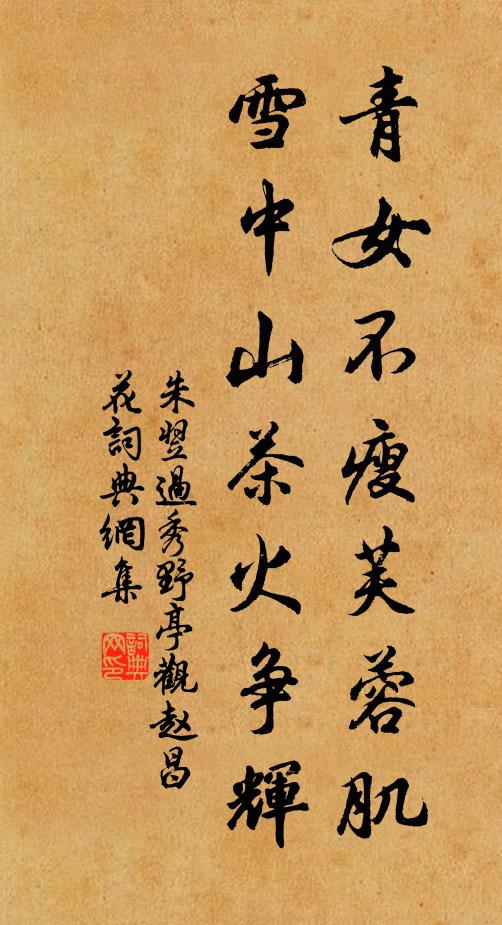 青女不瘦芙蓉肌
雪中山茶火争輝
朱翌過秀野亭觀赵昌
花詞典網集
詞典
网印